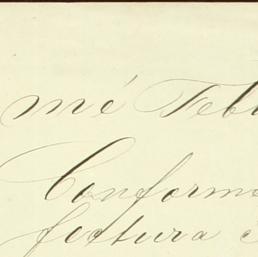 mé Feb
Conforme
factura